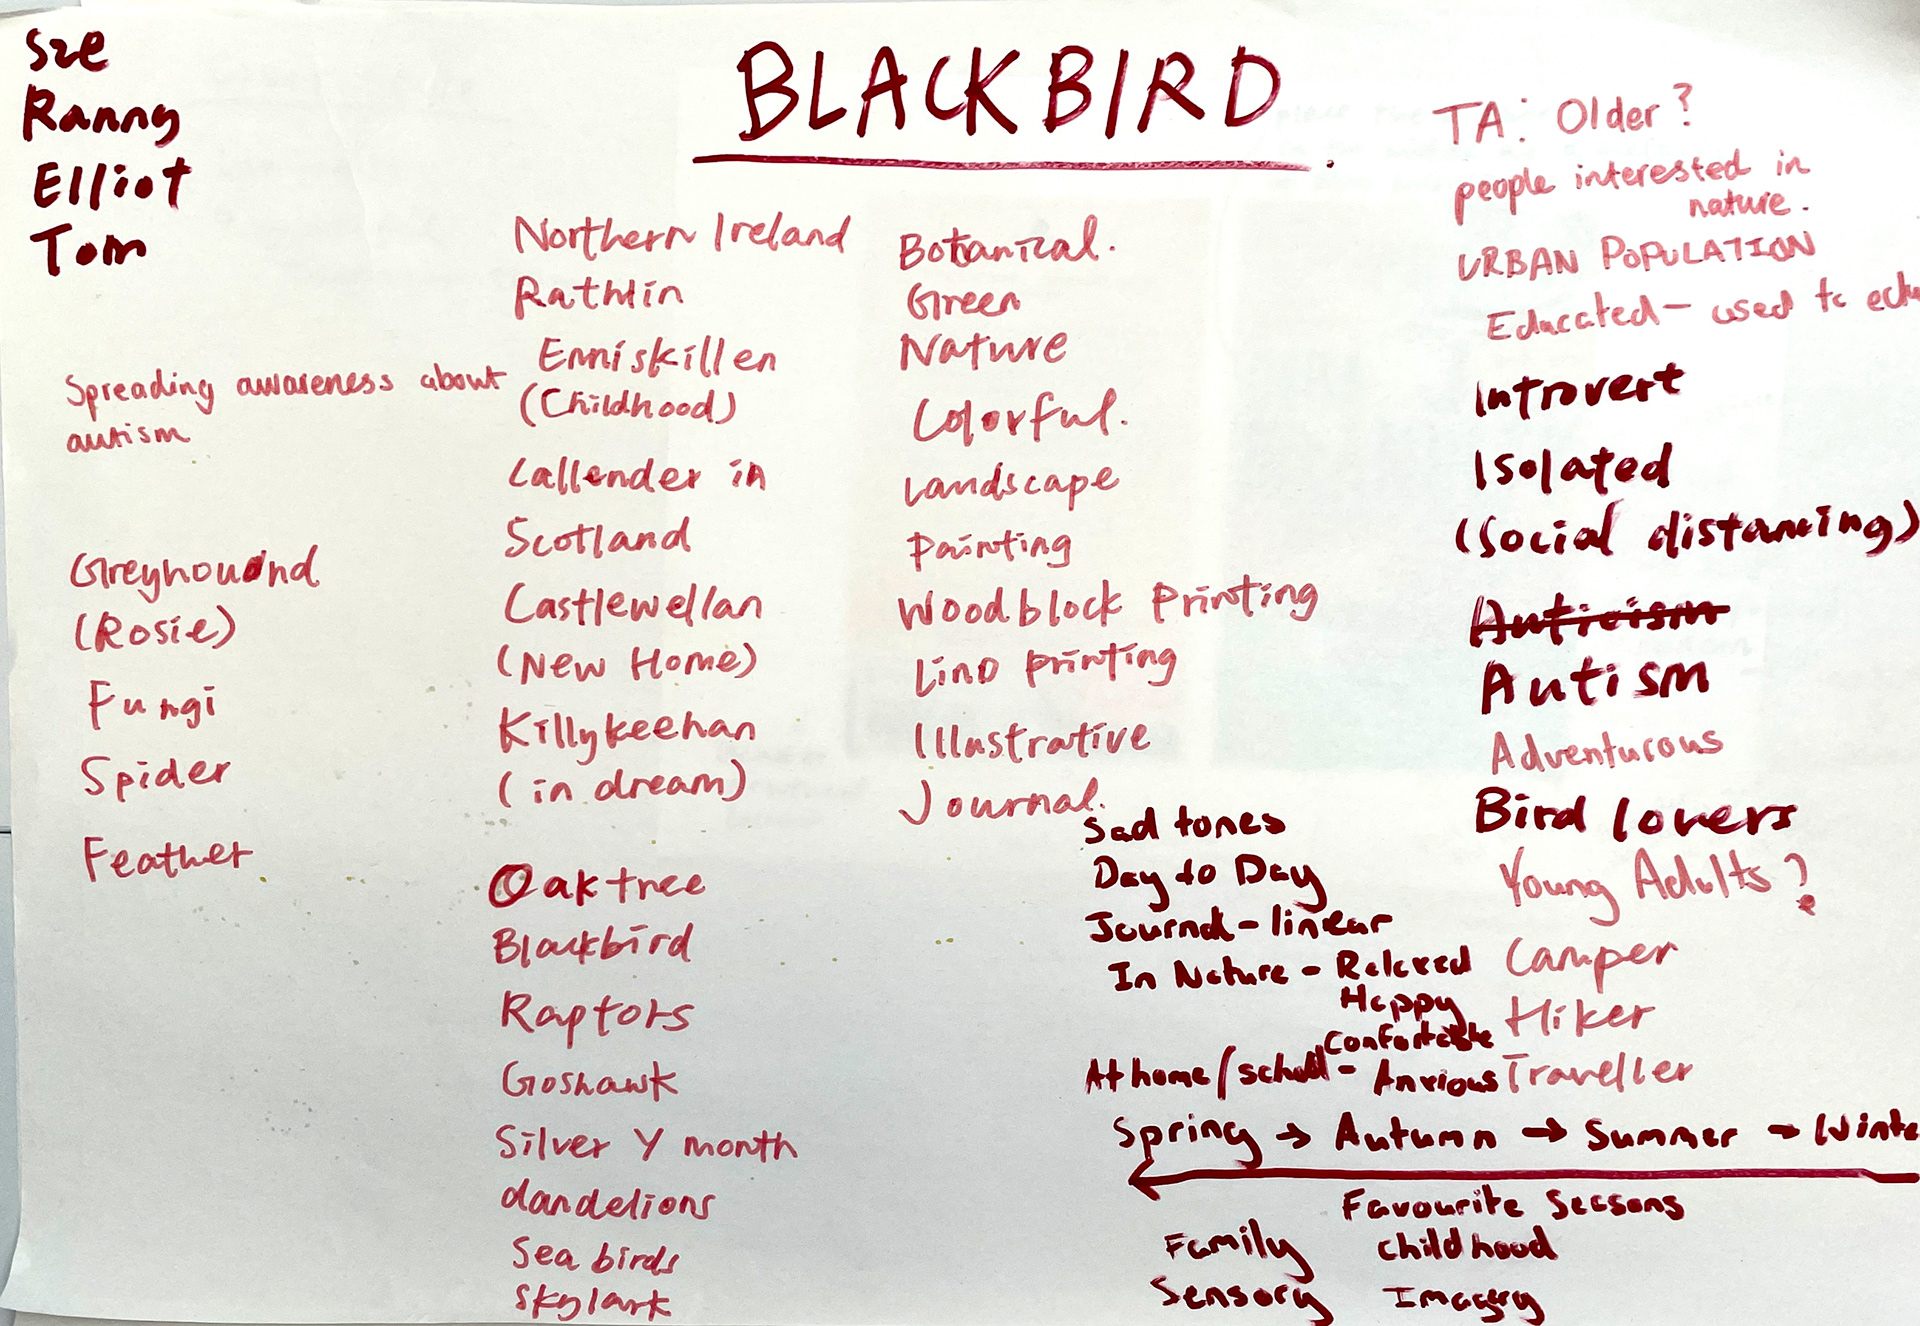 Sze
Ranny
Elliot
Tom
BLACKBIRD
Spreading awareness about
autism
Greyhound
(Rosie)
Fungi
Spider
Feather
Northern Ireland
Rathlin
Enniskillen
(Childhood)
Callender in
Scotland
Castlewellan
(New Home)
Killykeehan
(in dream)
Oak tree
Blackbird
Raptors
Goshawk
Silver Y month
dandelions
Sea birds
Skylark
Botanical.
Green
Nature
Colorful.
Landscape
Painting
Woodblock Printing
Lino printing
Illustrative
Journal.
Sad tones
Day to Day
Journal - linear
In Nature - Relaxed
Happy
Confortable
At home/school - Anxious
Spring → Autumn → Summer → Winte
Favourite Seasons
Family childhood
Sensory Imagery
TA: Older?
people interested in
nature.
URBAN POPULATION
Educated - used to
Introvert
Isolated
(Social distancing)
Autism
Adventurous
Bird lovers
Young Adults?
Camper
Hiker
Traveller